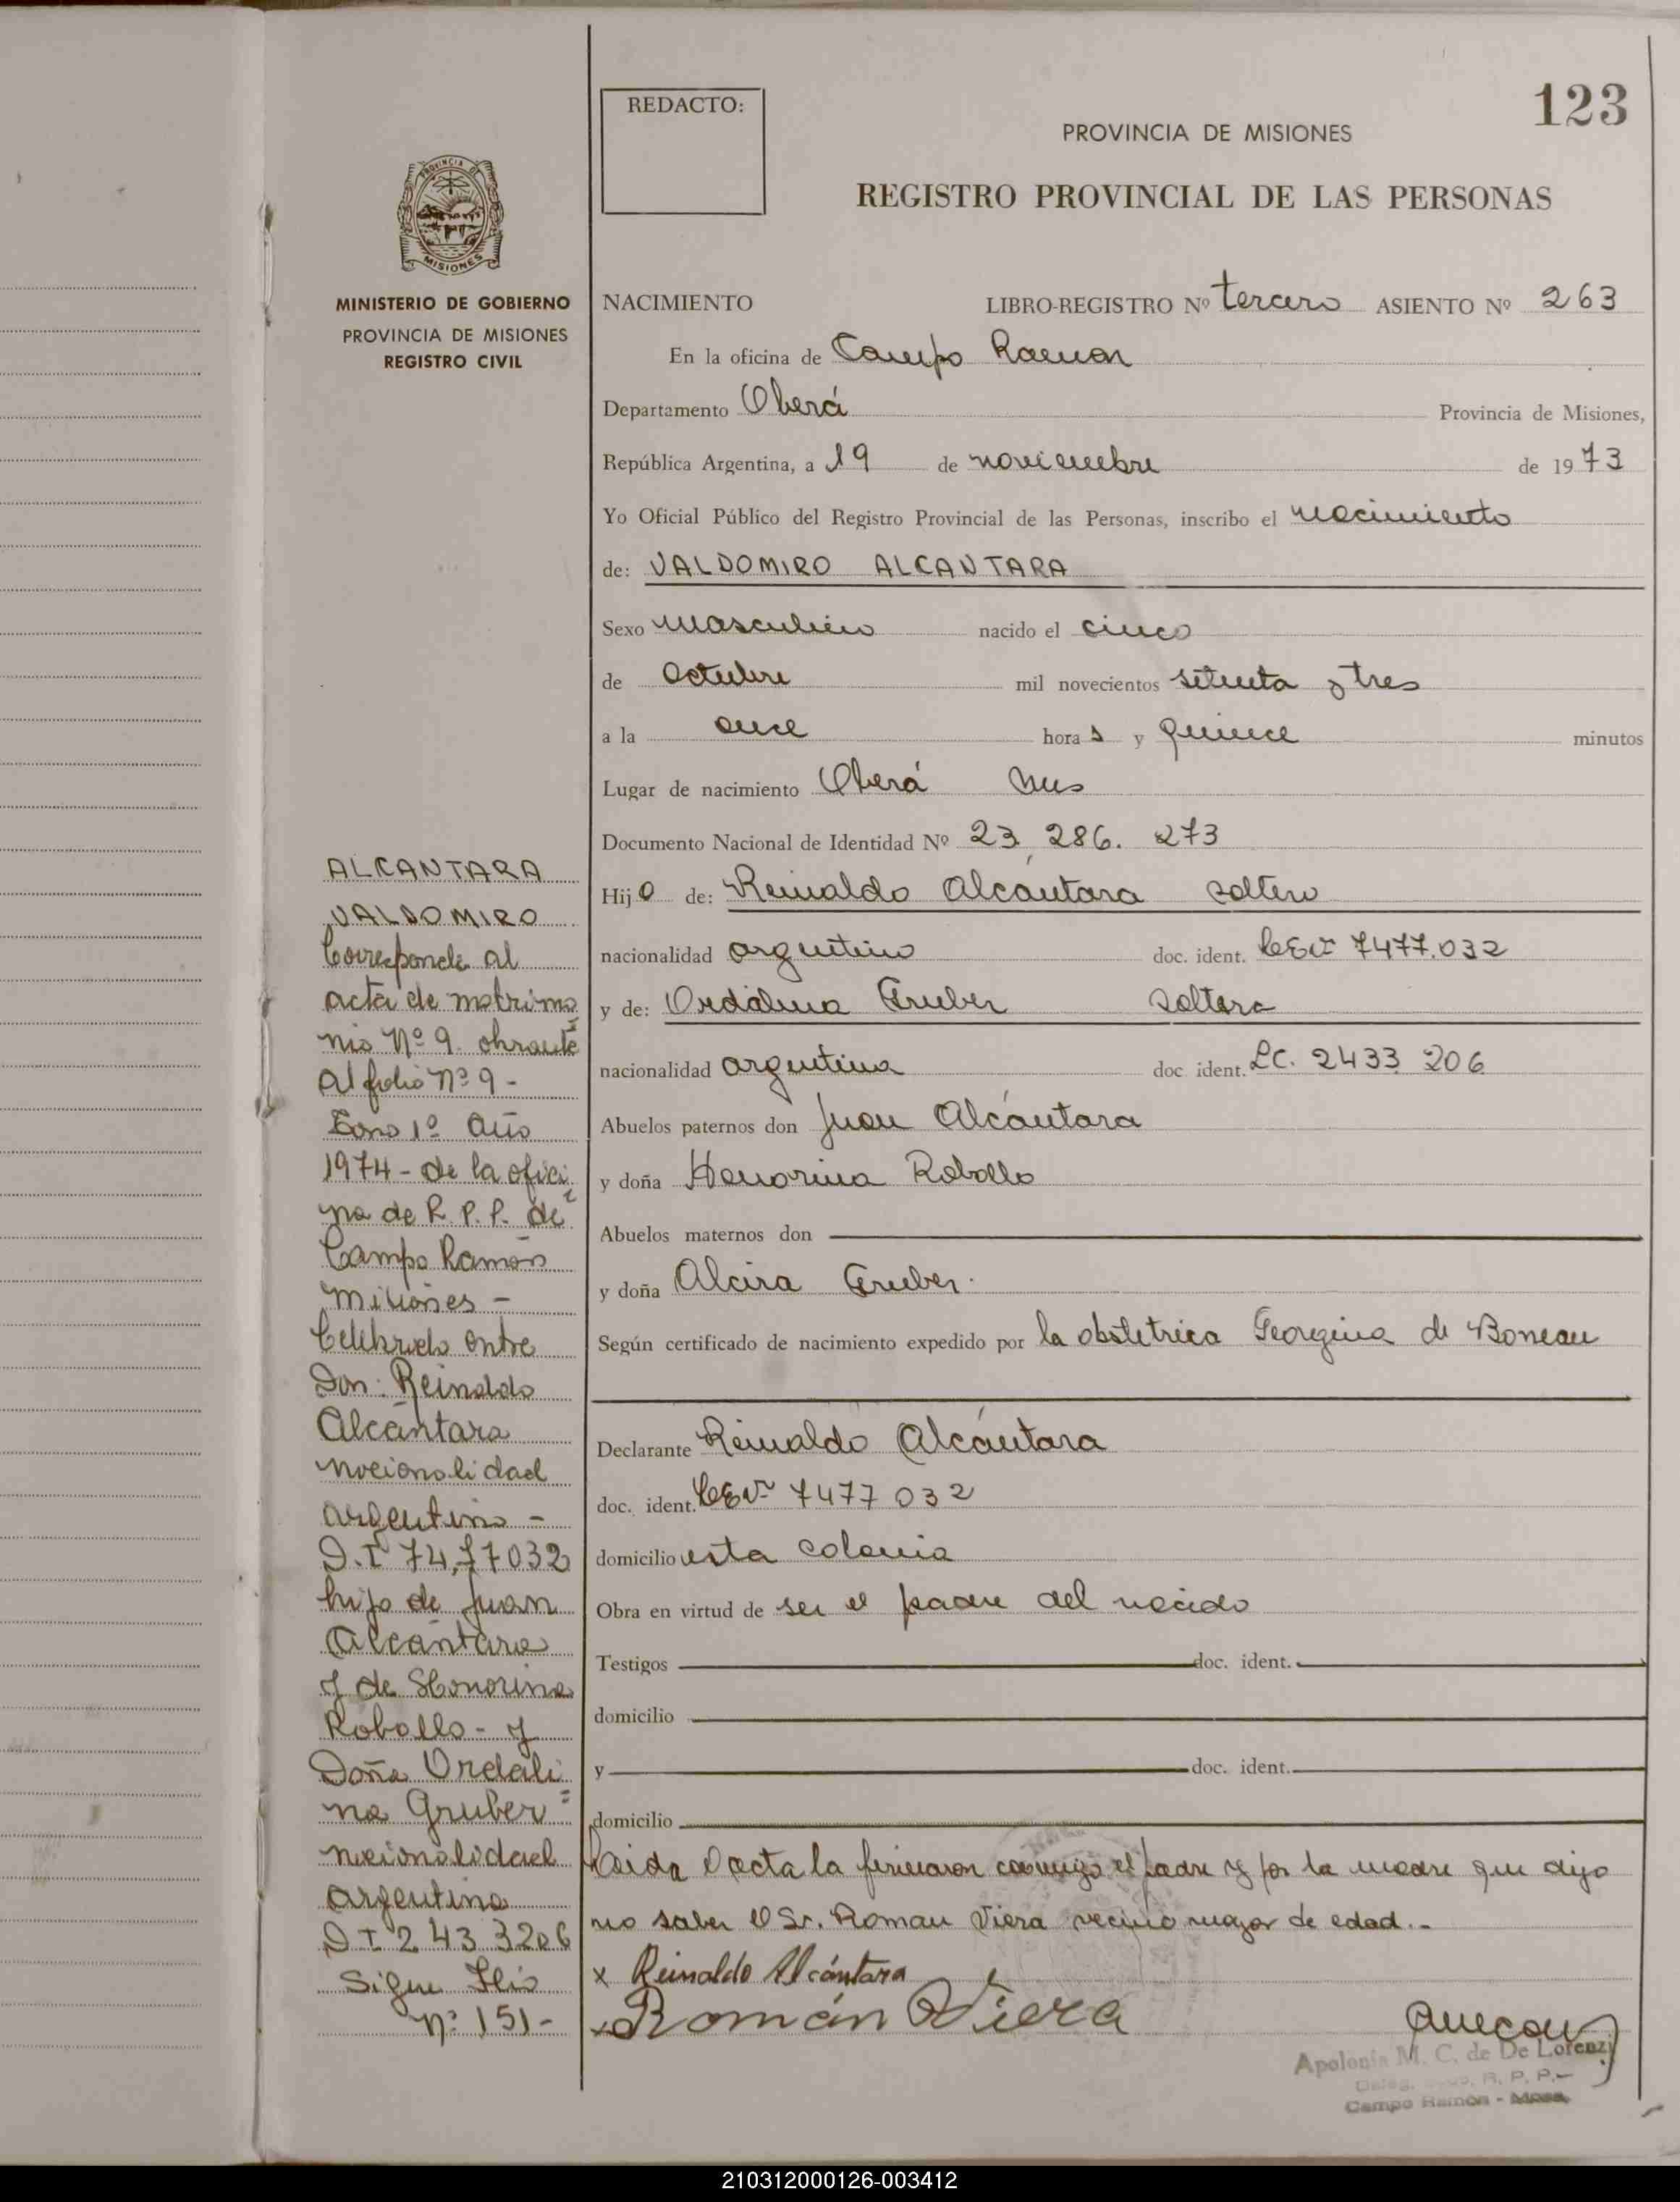 123
REDACTO:
PROVINCIA DE MISIONES
REGISTRO PROVINCIAL DE LAS PERSONAS
PROVINCIA DE
MISIONES
MINISTERIO DE GOBIERNO
PROVINCIA DE MISIONES
REGISTRO CIVIL
NACIMIENTO LIBRO-REGISTRO Nº tercero ASIENTO Nº 263
En la oficina de Campo Ramon
Departamento Oberá Provincia de Misiones,
República Argentina, a 19 de noviembre de 1973
Yo Oficial Público del Registro Provincial de las Personas, inscribo el nacimiento
de: VALDOMIRO ALCANTARA
Sexo masculino nacido el cinco
de Octubre mil novecientos setenta y tres
a la once horas y quince minutos
Lugar de nacimiento Oberá Mns
Documento Nacional de Identidad Nº 23.286.273
Hijo de: Reinaldo Alcantara soltero
nacionalidad argentino doc. ident. 7477.032
y de: Ordalina Gruber soltera
nacionalidad argentina doc. ident. LC. 2433 206
Abuelos paternos don Juan Alcántara
y doña Honorina Robollo
Abuelos maternos don
y doña Alcira Gruber.
Según certificado de nacimiento expedido por la obstetrica Georgina de Boneau
Declarante Reinaldo Alcántara
doc. ident. 7477 032
domicilio esta colonia
Obra en virtud de ser el padre del nacido
Testigos doc. ident.
domicilio
y doc. ident.
domicilio
Leida el acta la firmaron conmigo el padre y por la madre que dijo
no saber el Sr. Roman Viera vecino mayor de edad.-
x Reinaldo Alcántara
x Román Viera
Apolonia M. C. de De Lorenzi
R. P. P.
Campo Ramón - Mnes.
ALCANTARA
VALDOMIRO
Corresponde al
acta de matrimo
nio Nº 9 obrante
al folio nº 9 -
Tomo 1º Año
1974 - de la ofici
na de R. P. P. de
Campo Ramón
Misiones -
Celebrado entre
Don: Reinaldo
Alcántara
nacionalidad
argentino -
D.I 74,77032
hijo de Juan
Alcántara
y de Honorina
Robollo - y
Doña Ordali
na Gruber
nacionalidad
argentina
D I 2 43 3206
Sigue folio
nº 151 -
210312000126-003412